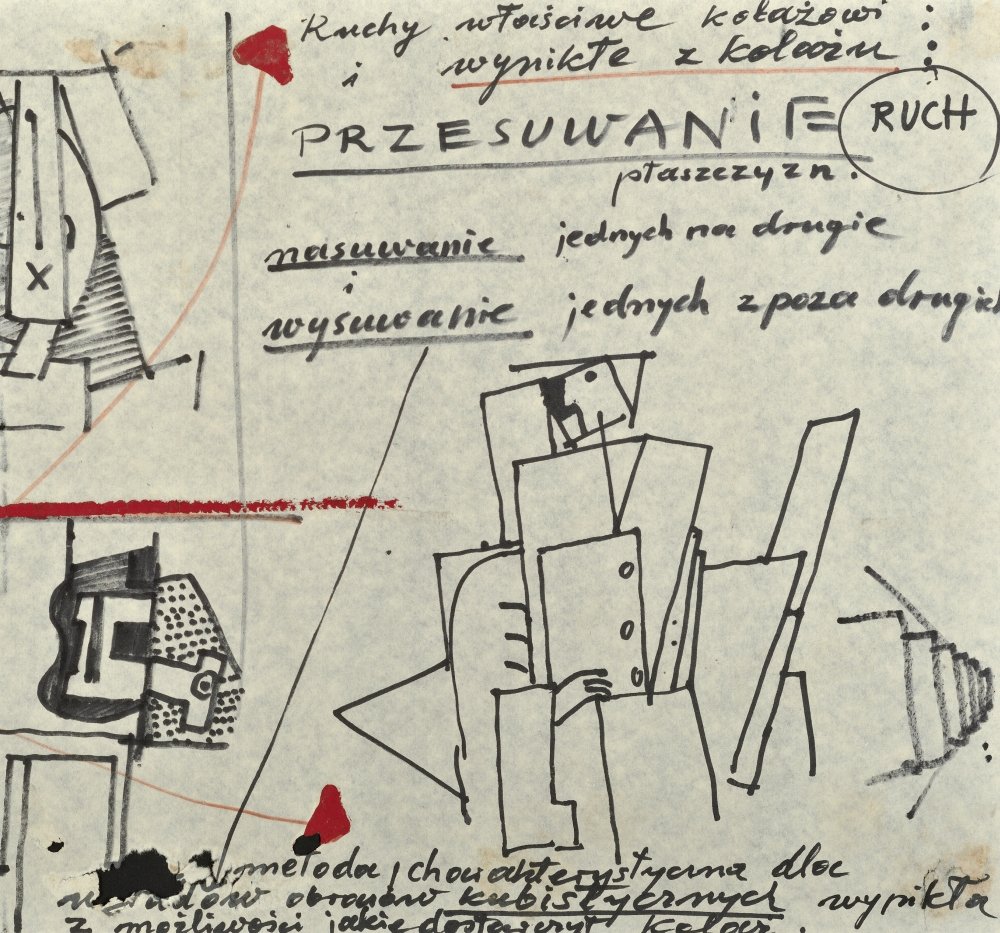 Ruchy właściwe kolażowi
i wynikłe z kolażu
PRZESUWANIE
RUCH
płaszczyzn.
nasuwanie jednych na drugie
i
wysuwanie jednych z poza drugich
X
metoda, charakterystyczna dla
obrazów kubistycznych wynikła
z możliwości jakie dostarczył kolaż.